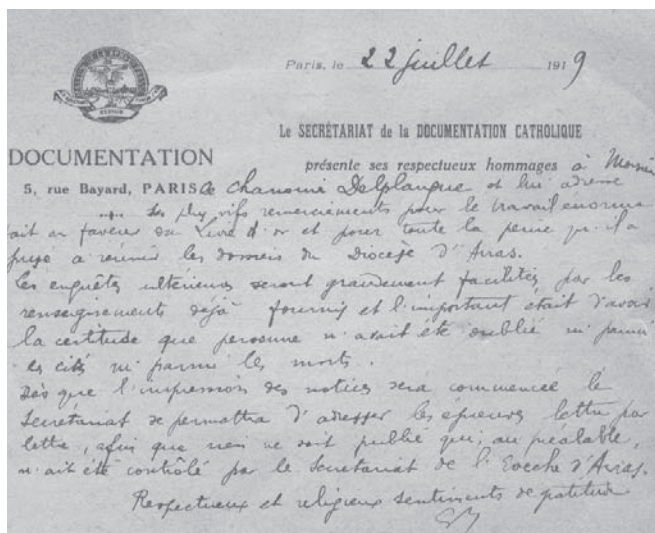 Paris, le 22 juillet 1919
Le SECRÉTARIAT de la DOCUMENTATION CATHOLIQUE
DOCUMENTATION
présente ses respectueux hommages à
5, rue Bayard, PARIS
Chanoine Delplanque et lui adresse
les plus vifs remerciements pour le travail énorme
fait en faveur du Livre d'or et pour toute la peine qu'il a
prise à réunir les dossiers du Diocèse d'Arras.
Les enquêtes ultérieures seront grandement facilités par les
renseignements déjà fournis et l'important était d'avoir
la certitude que personne n'avait été oublié ni parmi
les cités ni parmi les morts.
Dès que l'impression des notices sera commencée le
Secrétariat se permettra d'adresser les épreuves lettre par
lettre, afin que rien ne soit publié qui, au préalable,
n'ait été contrôlé par le Secrétariat de l'Evêché d'Arras.
Respectueux et religieux sentiments de gratitude